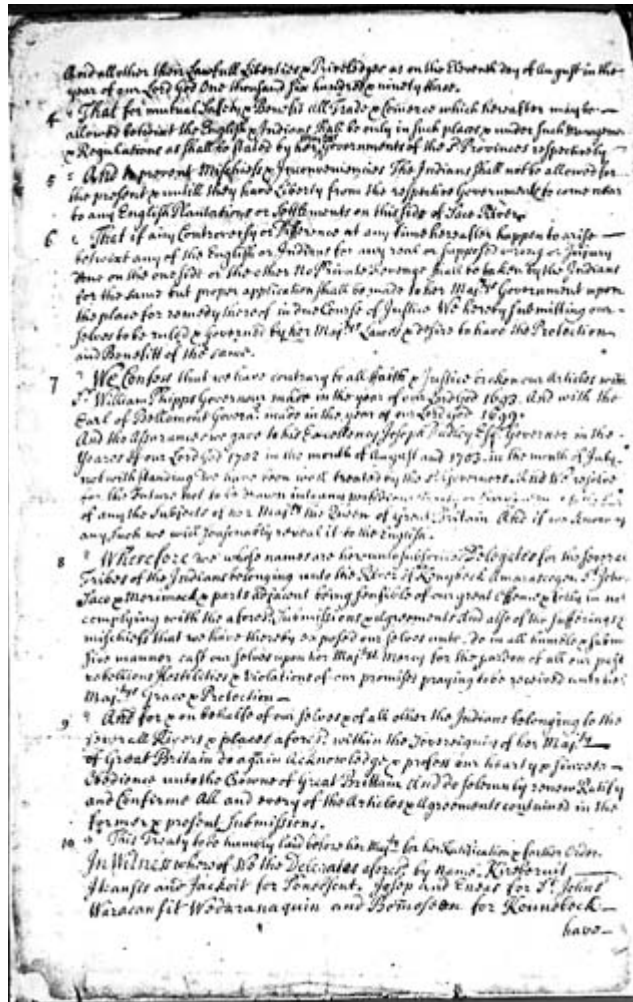 And all other their Lawfull Liberties & Priviledges as on the Eleventh day of August in the
year of our Lord God One thousand six hundred & ninety three.
4 " That for mutual Safety & Benefit All Trade & Comerce which hereafter may be
allowed betwixt the English & Indians shall be only in such places & under such
& Regulations as shall be stated by her Governments of the sd Provinces respectively
5 " And to prevent Mischiefs & Inconveniencies The Indians shall not be allowed for
the present & untill they have Liberty from the respective Governments to come near
to any English Plantations or Settlements on this side of Saco River.
6 " That if any Controversy or Difference at any time hereafter happen to arise
betwixt any of the English or Indians for any real or supposed wrong or Injury
done on the one side or the other No Private Revenge shall be taken by the Indians
for the same but proper application shall be made to her Majtys Government upon
the place for remedy thereof in due Course of Justice We hereby submitting our
selves to be ruled & governed by her Majtys Lawes & desire to have the Protection
and Benefitt of the same.
7 " We Confess that we have contrary to all Faith & Justice broken our Articles with
Sr William Phipps Governour made in the year of our Lord God 1693. And with the
Earl of Bellomont Governr made in the year of our Lord God 1699.
And the Assurance we gave to his Excellency Joseph Dudley Esqr Governer in the
Yeares of our Lord God 1702 in the month of August and 1703. in the month of July
notwithstanding we have been well treated by the sd Governers. And We resolve
for the Future not to be drawn into any
of any the Subjects of her Majty the Queen of Great Britain And if we know of
any such we will seasonably reveal it to the English.
8 " Wherefore we whose names are hereunto subscribed Delegates for the severall
Tribes of the Indians belonging unto the River of Kenybeck Amarascogen St Johns
Saco & Merrimack & parts adjacent being sensible of our great offence & folly in not
complying with the aforesd Submissions & agreements And also of the sufferings &
mischiefs that we have thereby exposed our selves unto do in all humble & submis
sive manner cast our selves upon her Majtys Mercy for the pardon of all our past
rebellions Hostilities & Violations of our promises praying to be received unto her
Majtys Grace & Protection
9 " And for & on behalfe of our selves & of all other the Indians belonging to the
severall Rivers & places aforesd within the Sovereignty of her Majty
of Great Britain do again Acknowledge & profess our hearty & sincere
Obedience unto the Crowne of Great Brittain And do solemnly renew Ratify
and Confirme All and every of the Articles & Agreements contained in the
former & present Submissions.
10 " This Treaty to be humbly laid before her Majty for her Ratification & further Order.
In Witness whereof We the Delegates aforesd by name Kirebenuit
Iteansis and Jackoit for Penobscot. Joseph and Eneas for St Johns
Waracansit Wedaranaquin and Bomoseen for Kennebeck
have